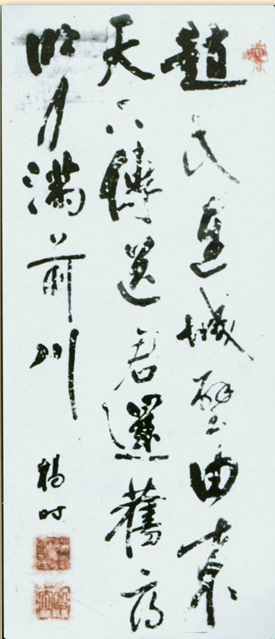 趙氏連城璧由來
天下傳送君還舊府
明月滿前川
楊時